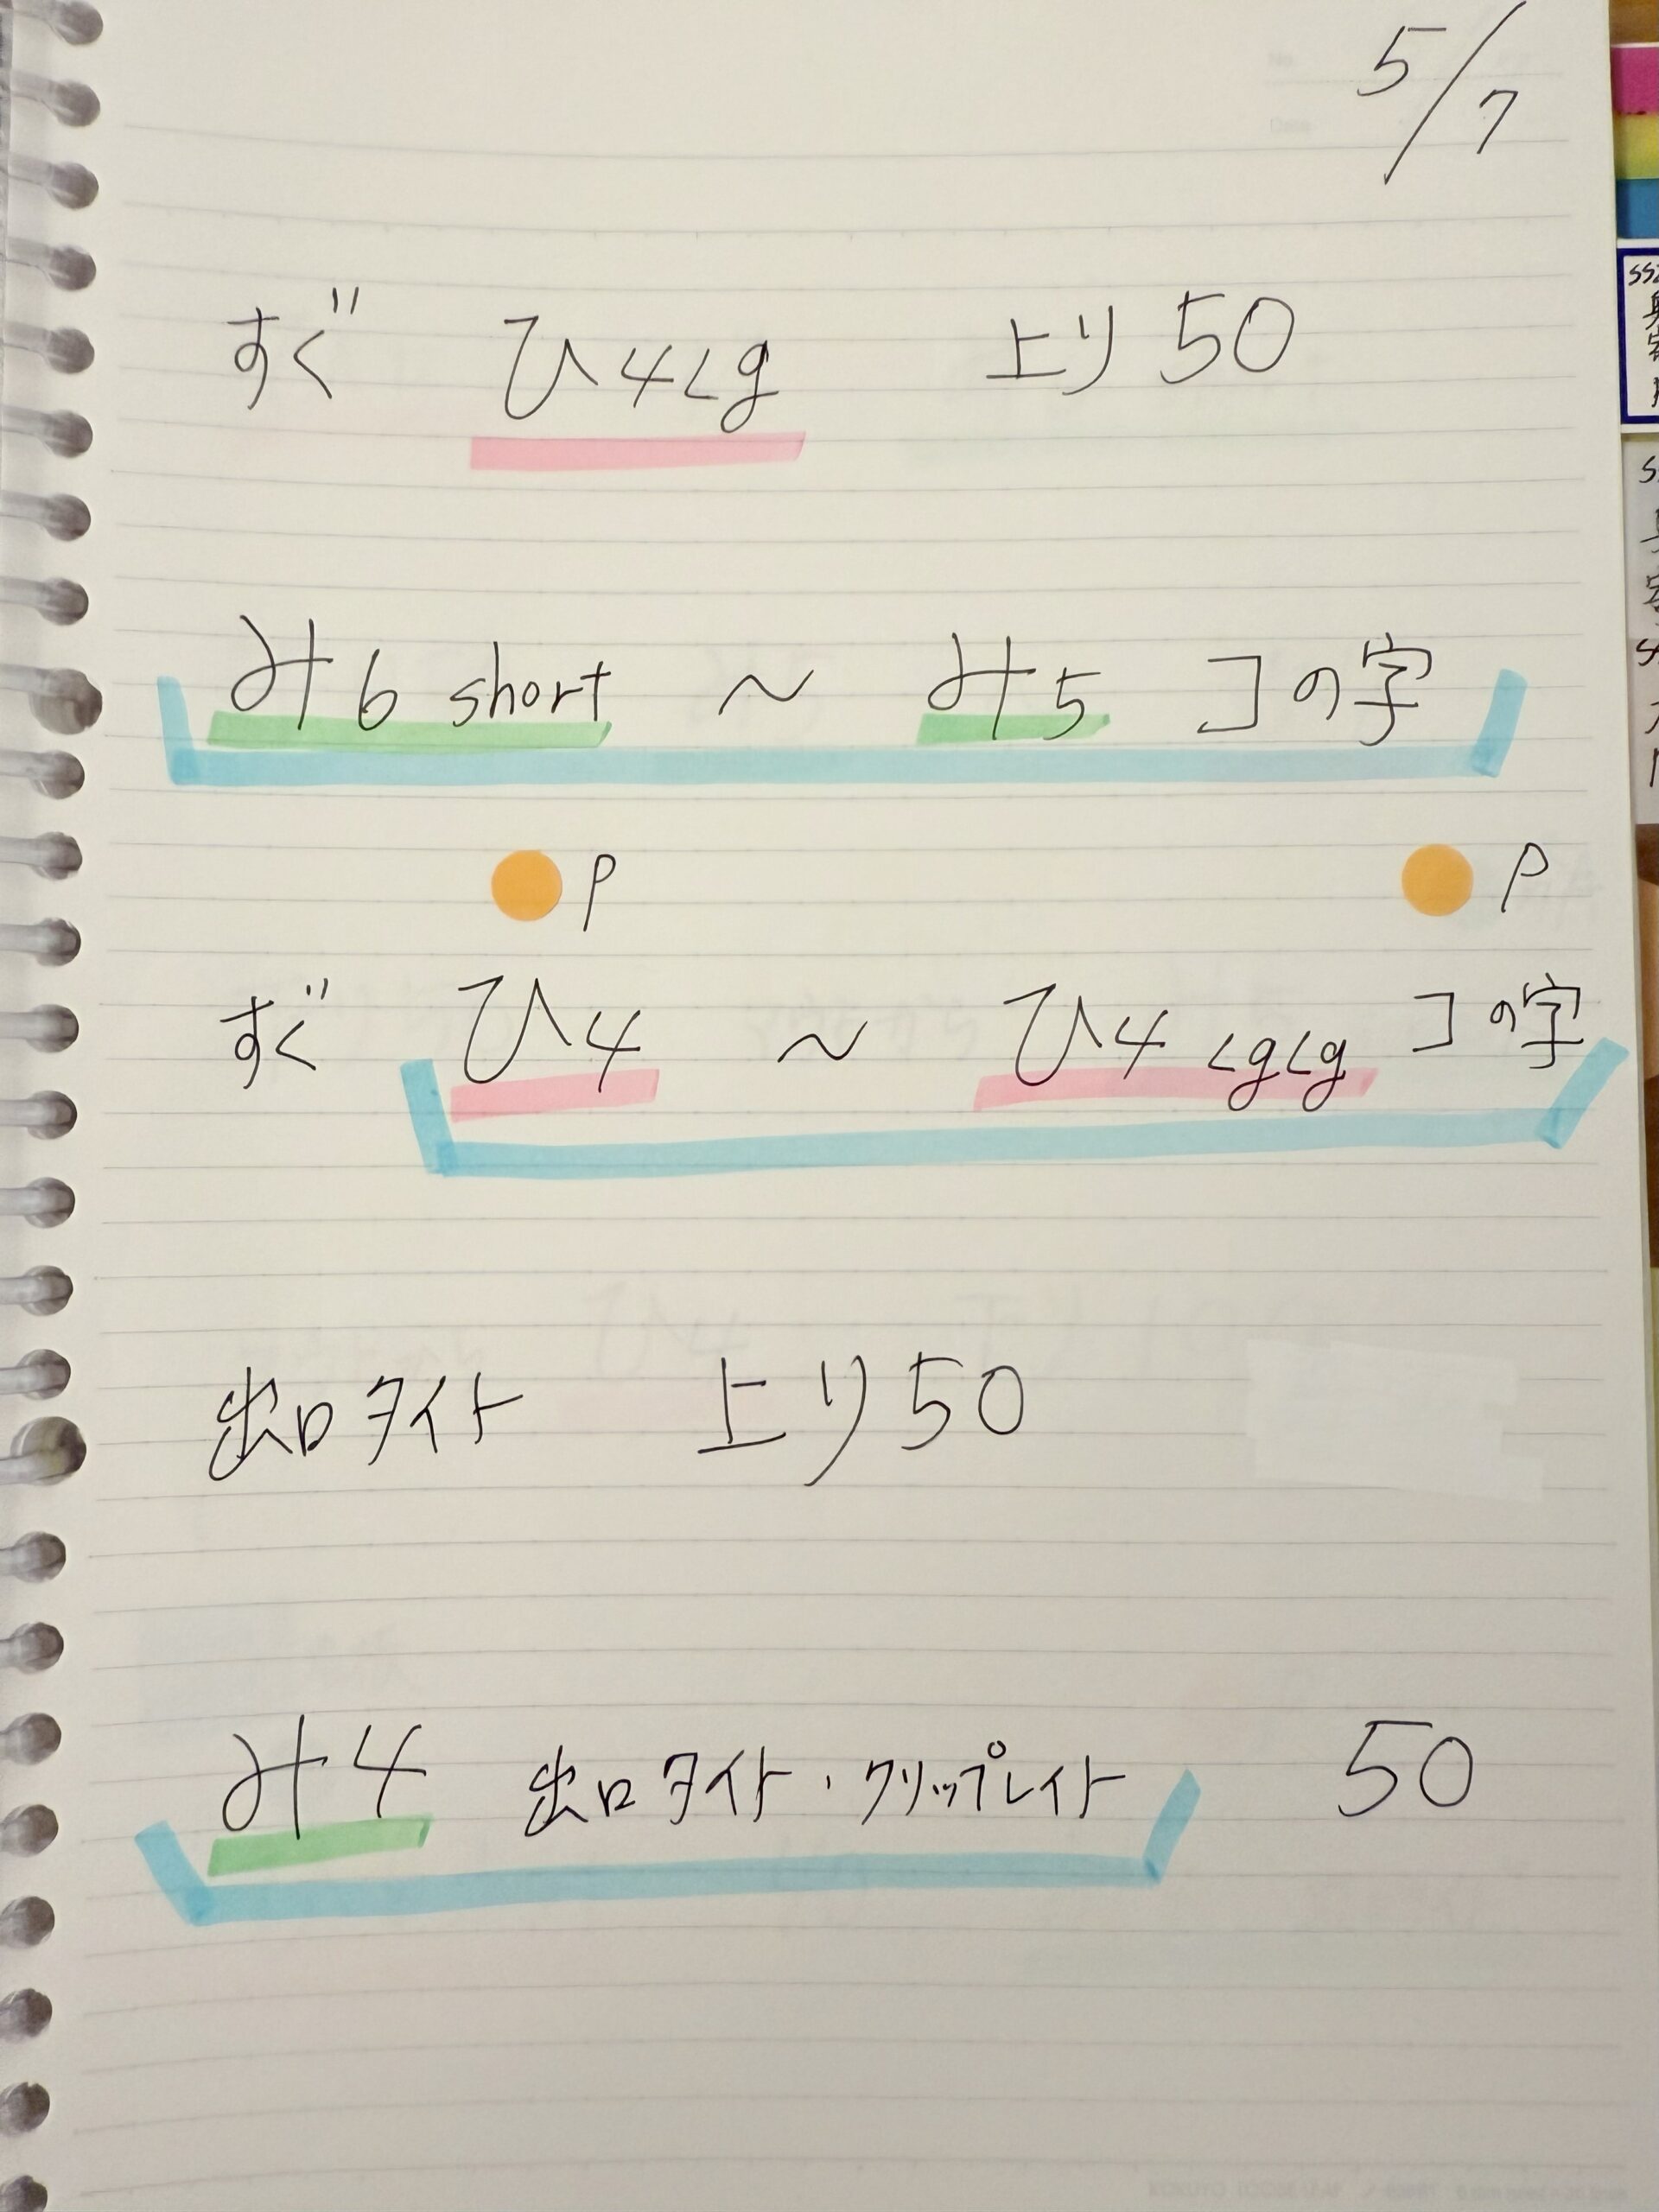 5/7
すぐ ひ4Lg 上り50
み6 short ～ み5 コの字
P P
すぐ ひ4 ～ ひ4 LgLg コの字
出口タイト 上り50
み4 出口タイト・クリップレイト 50